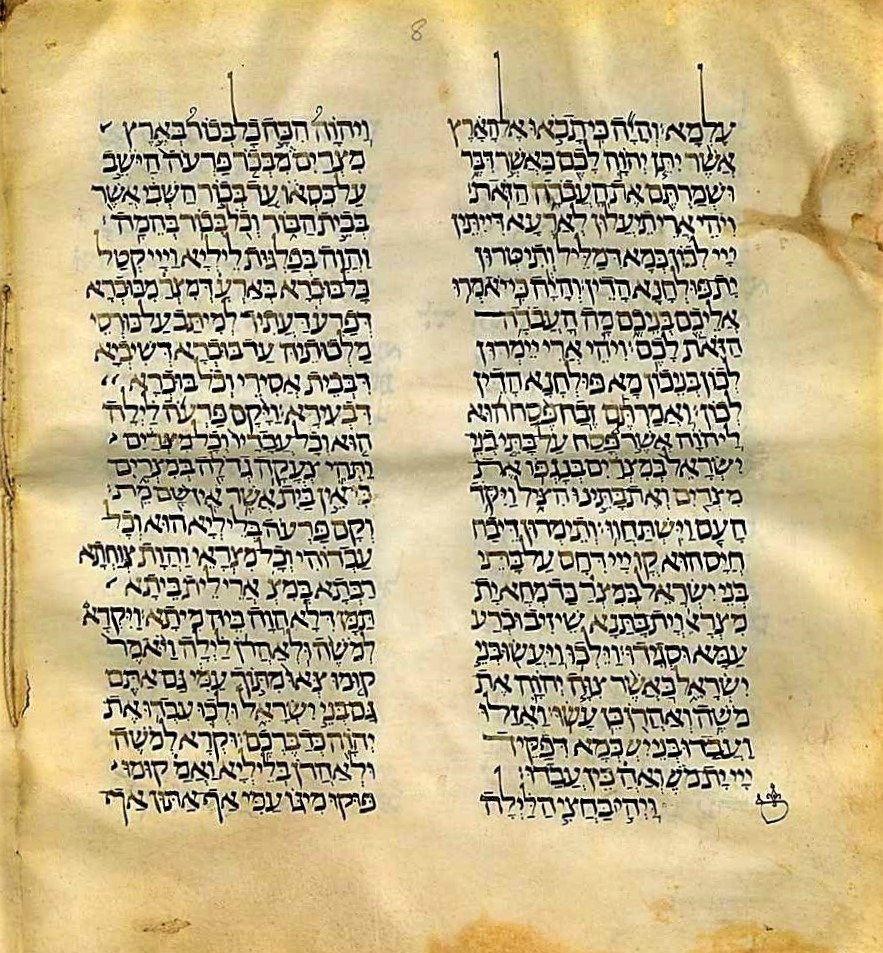 8
עלמא והיה כי תבאו אל הארץ
אשר יתן יהוה לכם כאשר דבר
ושמרתם את העבדה הזאת
ויהי ארי תיעלון לארעא דייתין
ייי לכון כמא דמליל ותיטרון
ית פולחנא הדין והיה כי יאמרו
אליכם בניכם מה העבדה
הזאת לכם ויהי ארי יימרון
לכון בניכון מא פולחנא הדין
לכון ואמרתם זבח פסח הוא
ליהוה אשר פסח על בתי בני
ישראל במצרים בנגפו את
מצרים ואת בתינו הציל ויקד
העם וישתחוו ותימרון דיבח
חייס הוא קד ייי דחס על בתי
בני ישראל במצר כד מחא ית
מצרא וית בתנא שיזיב וכרע
עמא וסגידו וילכו ויעשו בני
ישראל כאשר צוה יהוה את
משה ואהרן כן עשו ואזלו
ועבדו בני יש כמא דפקיד
ייי ית מש ואה כין עבדו
ויהי בחצי הלילה
ויהוה הכה כל בכור בארץ
מצרים מבכר פרעה הישב
על כסאו עד בכור השבי אשר
בבית הבור וכל בכור בהמה
והוה בפלגות ליליא וייי קטל
כל בוכרא בארע דמצר מבוכרא
דפרעה דעתיד למיתב על כורסי
מלכותיה עד בוכרא דשיביא
דבבית אסירי וכל בוכרא
דבעירא ויקם פרעה לילה
הוא וכל עבדיו וכל מצרים
ותהי צעקה גדלה במצרים
כי אין בית אשר אין שם מת
וקם פרעה בליליא הוא וכל
עבדוהי וכל מצראי והות צוחתא
רבתא במצ ארי לית ביתא
תמן דלא הוה ביה מיתא ויקרא
למשה ולאהרן לילה ויאמר
קומו צאו מתוך עמי גם אתם
גם בני ישראל ולכו עבדו את
יהוה כדברכם וקרא למשה
ולאהרן בליליא ואמ קומו
פוקו מיגו עמי אף אתון אף